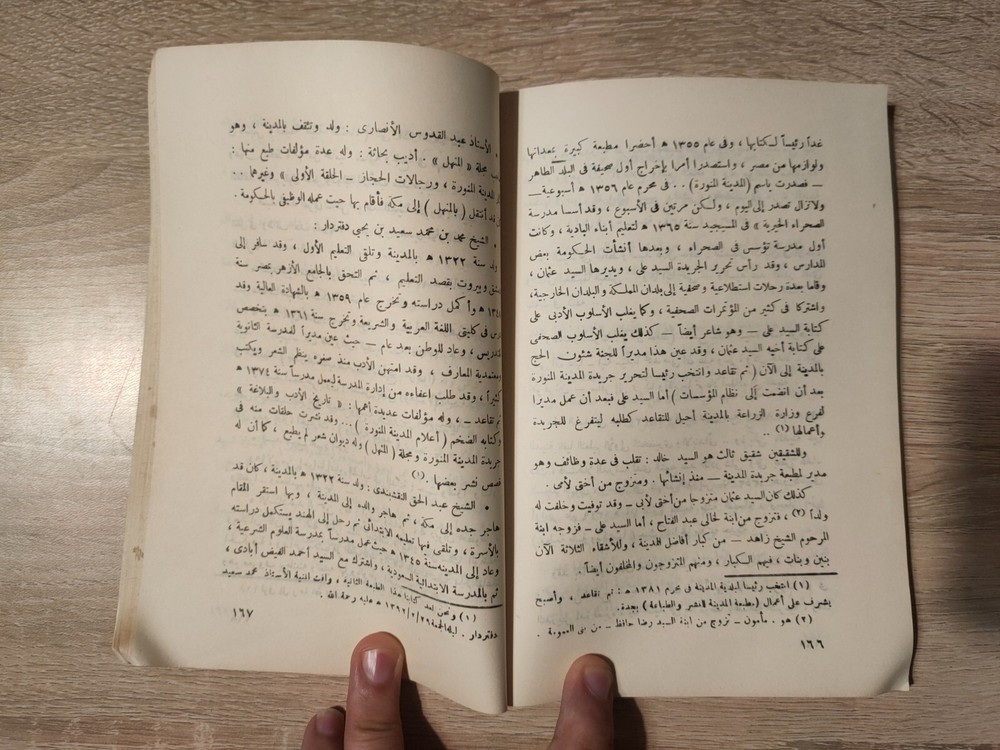 غداً رئيساً لكتابها ، وفى عام ١٣٥٥ ﻫ أحضرا مطبعة كبيرة بمعداتها
ولوازمها من مصر ، واستصدرا أمرا بإخراج أول صحيفة فى البلد الطاهر
— فصدرت باسم (المدينة المنورة) . . فى محرم عام ١٣٥٦ ﻫ أسبوعية —
ولا تزال تصدر إلى اليوم ، ولكن مرتين فى الأسبوع ، وقد أسسا مدرسة
الصحراء الخيرية » فى المسيجيد سنة ١٣٦٥ ﻫ لتعليم أبناء البادية ، وكانت
أول مدرسة تؤسس فى الصحراء ، وبعدها أنشأت الحكومة بعض
المدارس ، وقد رأس تحرير الجريدة السيد على ، ويديرها السيد عثمان ،
وقاما بعدة رحلات استطلاعية وصحفية إلى بلدان المملكة والبلدان الخارجية،
واشتركا فى كثير من المؤتمرات الصحفية ، وكما يغلب الأسلوب الأدبى على
كتابة السيد على — وهو شاعر أيضاً — كذلك يغلب الأسلوب الصحفى
على كتابة أخيه السيد عثمان ، وقد عين هذا مديراً للجنة شئون الحج
بالمدينة إلى الآن ( ثم تقاعد وانتخب رئيسا لتحرير جريدة المدينة المنورة
بعد أن انضمت إلى نظام المؤسسات ) أما السيد على فبعد أن عمل مديرا
لفرع وزارة الزراعة بالمدينة أحيل للتقاعد كطلبه ليتفرغ للجريدة
وأعمالها (١) ..
وللشقيقين شقيق ثالث هو السيد خالد : تقلب فى عدة وظائف وهو
مدير لمطبعة جريدة المدينة — منذ إنشائها . ومتزوج من أختى لأمى .
كذلك كان السيد عثمان متزوجا من أختى لأبى — وقد توفيت وخلفت له
ولداً (٢) ، فتزوج من ابنة لخالى عبد الفتاح ، أما السيد على — فزوجه ابنة
المرحوم الشيخ زاهد — من كبار أفاضل المدينة ، وللأشقاء الثلاثة الآن
بنين وبنات ، فيهم الكبار ، ومنهم المتزوجون والمخلفون أيضاً .
(١) انتخب رئيسا لبلدية المدينة فى محرم ١٣٨١ ﻫ : ثم تقاعد ، وأصبح
يشرف على أعمال (مطبعة المدينة للنشر والطباعة) بجدة.
(٢) هو . مأمون — تزوج من ابنة السيد رضا حافظ — من بنى العمومة .
١٦٦
• الأستاذ عبد القدوس الأنصارى : ولد وتثقف بالمدينة ، وهو
مجلة « المنهل » . أديب بحاثة : وله عدة مؤلفات طبع منها :
المدينة المنورة ، ورجالات الحجاز — الحلقة الأولى » وغيرهما . .
قد انتقل ( بالمنهل ) إلى مكة فأقام بها حيث عمله الوظيفى بالحكومة .
• الشيخ محمد بن محمد سعيد بن يحيى دفتردار :
ولد سنة ١٣٢٢ ﻫ بالمدينة وتلقى التعليم الأول ، وقد سافر إلى
وبيروت بقصد التعليم ، ثم التحق بالجامع الأزهر بمصر سنة
وأكمل دراسته وتخرج عام ١٣٥٩ ﻫ بالشهادة العالية وقد
فى كليتى اللغة العربية والشريعة وتخرج سنة ١٣٦١ ﻫ بتخصص
التدريس ، وعاد للوطن بعد عام — حيث عين مديراً لمدرسة الثانوية
بمعتمدية المعارف ، وقد امتهن الأدب منذ صغره ينظم الشعر ويكتب
كثيراً ، وقد طلب اعفاءه من إدارة المدرسة ليعمل مدرساً سنة ١٣٧٤ ﻫ
ثم تقاعد — ، وله مؤلفات عديدة أهمها : « تاريخ الأدب والبلاغة »
وكتابه الضخم ( أعلام المدينة المنورة ) ... وقد نشرت حلقات منه فى
جريدة المدينة المنورة ومجلة ( المنهل ) وله ديوان شعر لم يطبع ، كما أن له
قصص نشر بعضها . (١)
• الشيخ عبد الحق النقشبندى : ولد سنة ١٣٢٢ ﻫ بالمدينة ، كان قد
هاجر جده إلى مكة ، ثم هاجر والده إلى المدينة ، وبها استقر المقام
بالأسرة ، وتلقى فيها تعليمه الابتدائى ثم رحل إلى الهند يستكمل دراسته
وعاد إلى المدينة سنة ١٣٤٥ ﻫ حيث عمل مدرساً بمدرسة العلوم الشرعية ،
ثم بالمدرسة الابتدائية السعودية ، واشترك مع السيد أحمد الفيض أبادى ،
(١) ونحن نعد كتابنا هذا الطبعة الثانية ، وافت المنية الأستاذ محمد سعيد
دفتردار . ليلة الجمعة ١٣٩٢/٢/٢٦ ﻫ عليه رحمة الله .
١٦٧